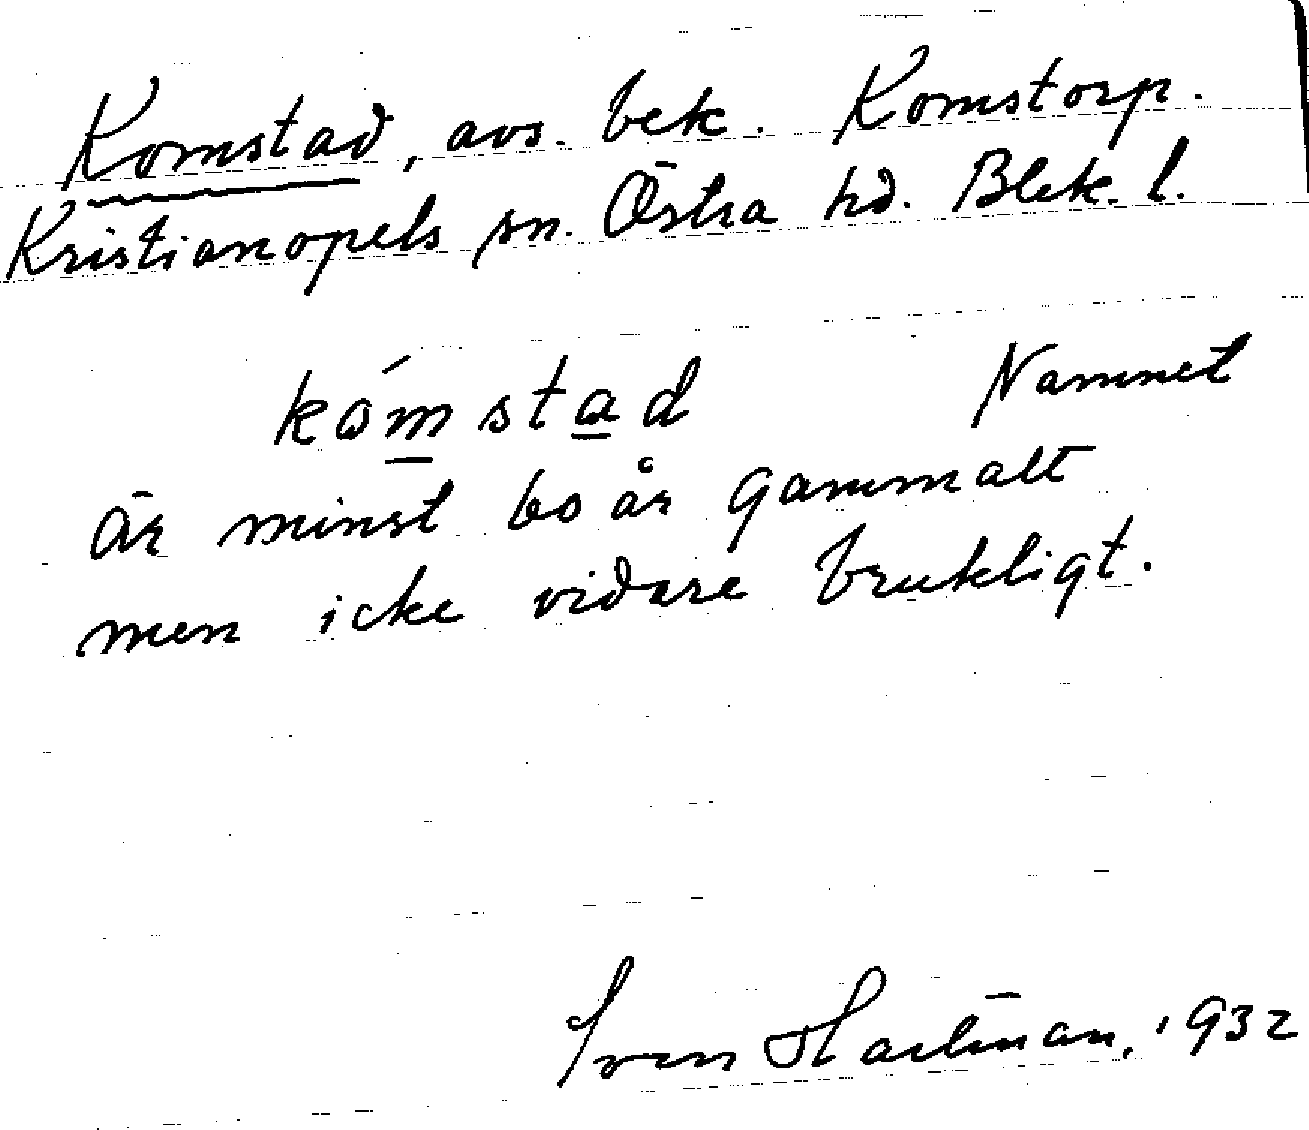 Komstad, avs. bek. Komstorp.
Kristianopels sn. Östra hd. Blek. l.
kómstad Namnet
är minst 60 år gammalt
men icke vidare brukligt.
Sven Hartman, 1932